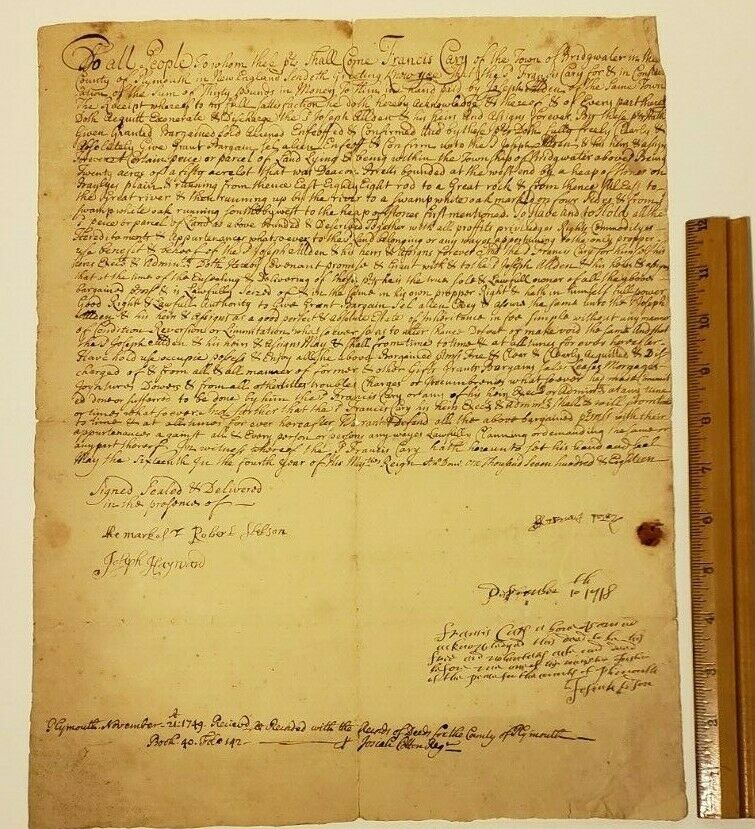 To all People To whom these Pts Shall Come Francis Cary of the Town of Bridgwater in the
County of Plymouth in New England Sendeth Greeting Know yee That I the sd Francis Cary for & in Conside
ration of the Sum of Thirty Pounds in Money To Him in hand paid by Joseph Alden of the Same Town
The Receipt whereof to my full Satisfaction he doth hereby Acknowledge & thereof & of Every part thereof
Doth Acquitt Exonerate & Discharge the sd Joseph Alden & his heirs and Assigns forever By these psts Hath
Given Granted Bargained sold Aliened Enfeoffed & Confirmed and by these psts Doth fully freely Clearly &
Absolutely Give Grant Bargain sell aliene Enfeoff & Confirm unto the sd Joseph Alden & his heirs & assigns
forever a Certain peice or parcel of Land Lying & being within the Township of Bridgwater abovesd Being
Twenty acres of a fifty acre lot that was Deacon bounded at the west end by a heap of stones on
plain & running from thence East Eighty Eight rod to a Great rock & from thence still East to
the Great river & then running up by the river to a swamp white oak marked on four sides & from sd
swamp white oak running south by west to the heap of stones first mentioned To Have and to Hold all the
sd peice or parcel of Land as above bounded & Described Together with all profits priviledges Rights Commodityes
Hereditaments & appurtenances whatsoever to the sd Land belonging or any wayes appertaining to the only proper
use benefit & behoof of the sd Joseph Alden & his heirs & assigns forever And the sd Francis Cary for himself his
heires Execrs & Adminrs Doth Hereby Covenant promise & Grant with & to the sd Joseph Alden & his heirs & assigns
that at the time of the Ensealing & Delivering of these psts he is the true sole & Lawfull owner of all the above
bargained & is Lawfully seized of & in the same in his own proper right & hath in himself full power
Good Right & Lawfull Authority to Give Grant Bargain sell aliene & assure the same unto the sd Joseph
Alden & his heirs & assigns as a good perfect & absolute Estate of Inheritance in fee simple without any manner
of Condition Reversion or Limmitation whatsoever so as to alter Defeat or make void the same And that
the sd Joseph Alden & his heirs & assigns May & Shall from time to time & at all times for ever hereafter
Have hold use occupie posess & Enjoy all the above Bargained free & Clear & Clearly Acquitted & Dis
charged of & from all & all manner of former & other Gifts Grants Bargains sales Leases Morgages
Joyntures Dowers & from all other titles troubles Charges or Incumbrances whatsoever had made comitted
done or suffered to be done by him the sd Francis Cary or any of his heirs Execrs or Adminrs at any time
or times whatsoever And further that the sd Francis Cary his heirs Execrs & Adminrs shall & will from time
to time & at all times for ever hereafter Warrant & Defend all the above bargained with their
appurtenances against all & Every person or persons any wayes Lawfully Claiming or demanding the same or
any part thereof In witness whereof the sd Francis Cary hath hereunto set his hand and seal
May the sixteenth In the fourth year of his Majties Reign Domi one thousand seven hundred & Eighteen
Signed Sealed & Delivered
in the presence of
the mark of Robert Stetson
Joseph Hayward
Francis Cary
th
1718
Francis Cary above named
acknowledged this deed to be his
free and voluntary act and deed
before me one of his majestis Justice
of the peace for the county of Plimouth
Josiah Edson
Plymouth November 21 1749 Recieved & Recorded with the Records of Deeds for the County of Plymouth
Book 40 Folo 142 Josiah Cotton Regr